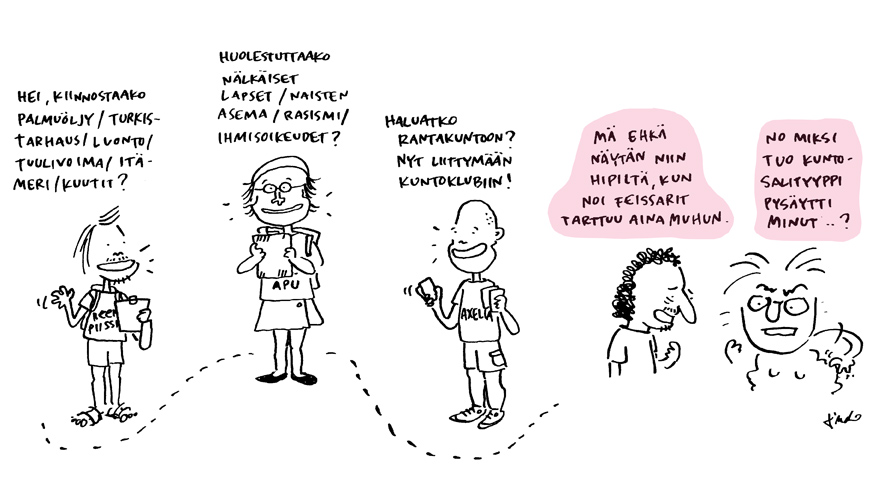 HEI, KIINNOSTAAKO
PALMUÖLJY/TURKIS-
TARHAUS/LUONTO/
TUULIVOIMA/ITÄ-
MERI/KUUTIT?
HUOLESTUTTAAKO
NÄLKÄISET
LAPSET/NAISTEN
ASEMA/RASISMI/
IHMISOIKEUDET?
HALUATKO
RANTAKUNTOON?
NYT LIITTYMÄÄN
KUNTOKLUBIIN!
MÄ EHKÄ
NÄYTÄN NIIN
HIPILTÄ, KUN
NOI FEISSARIT
TARTTUU AINA MUHUN.
NO MIKSI
TUO KUNTO-
SALITYYPPI
PYSÄYTTI
MINUT...?
PIISSI
APU